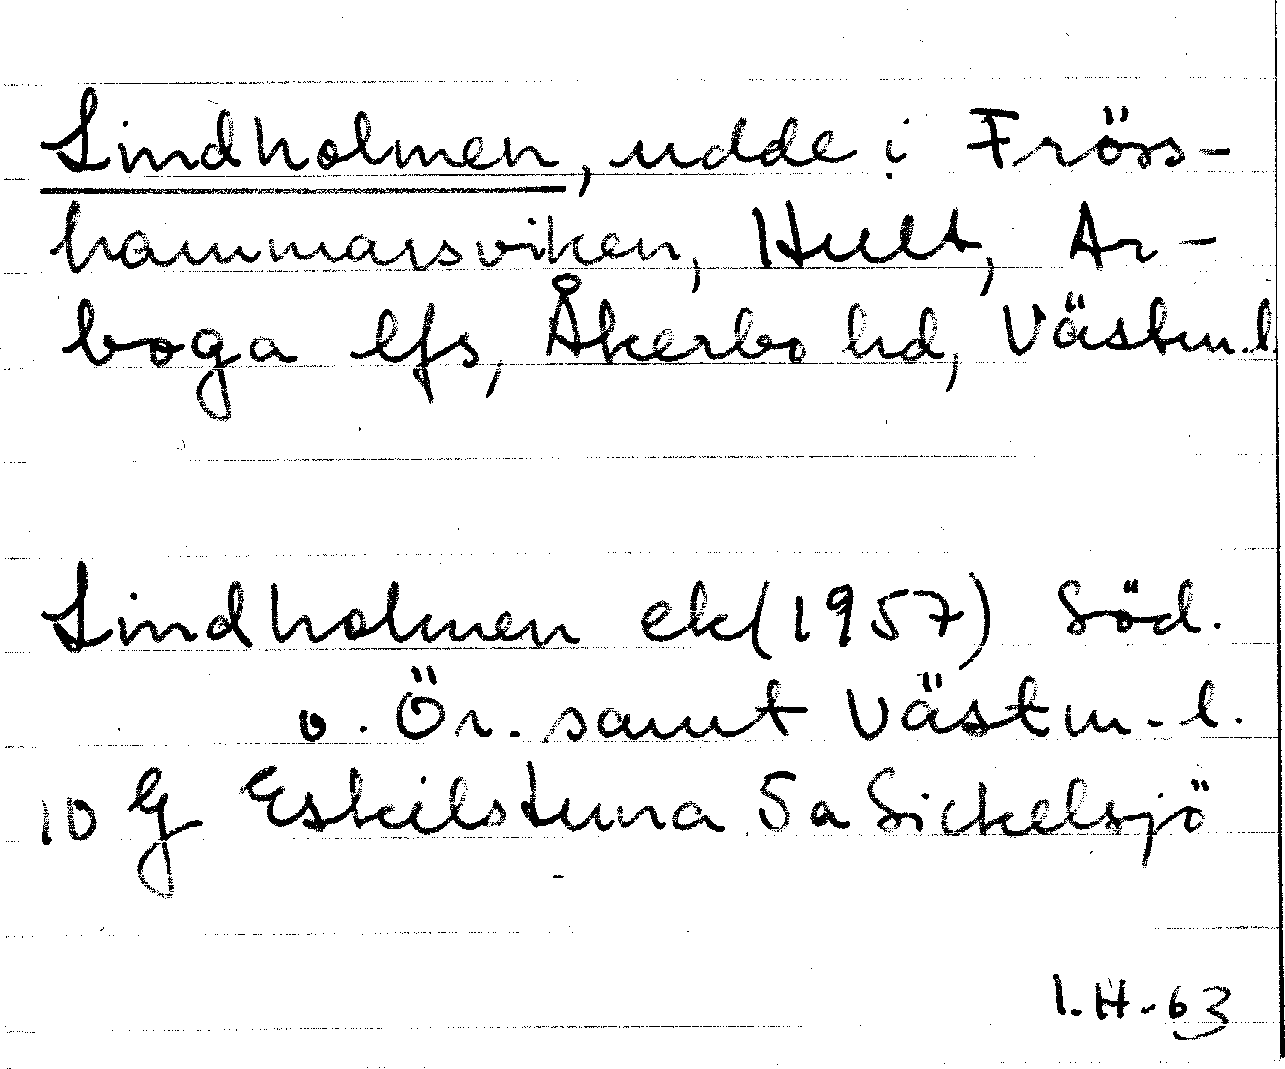 Lindholmen, udde i Fröss-
hammarsviken, Hult, Ar-
boga lfs, Åkerbo hd, Västm.l.
Lindholmen ek (1957) Söd.
o. Ör. samt Västm-l.
10 G Eskilstuna 5a Sickelsjö
I.H.-63